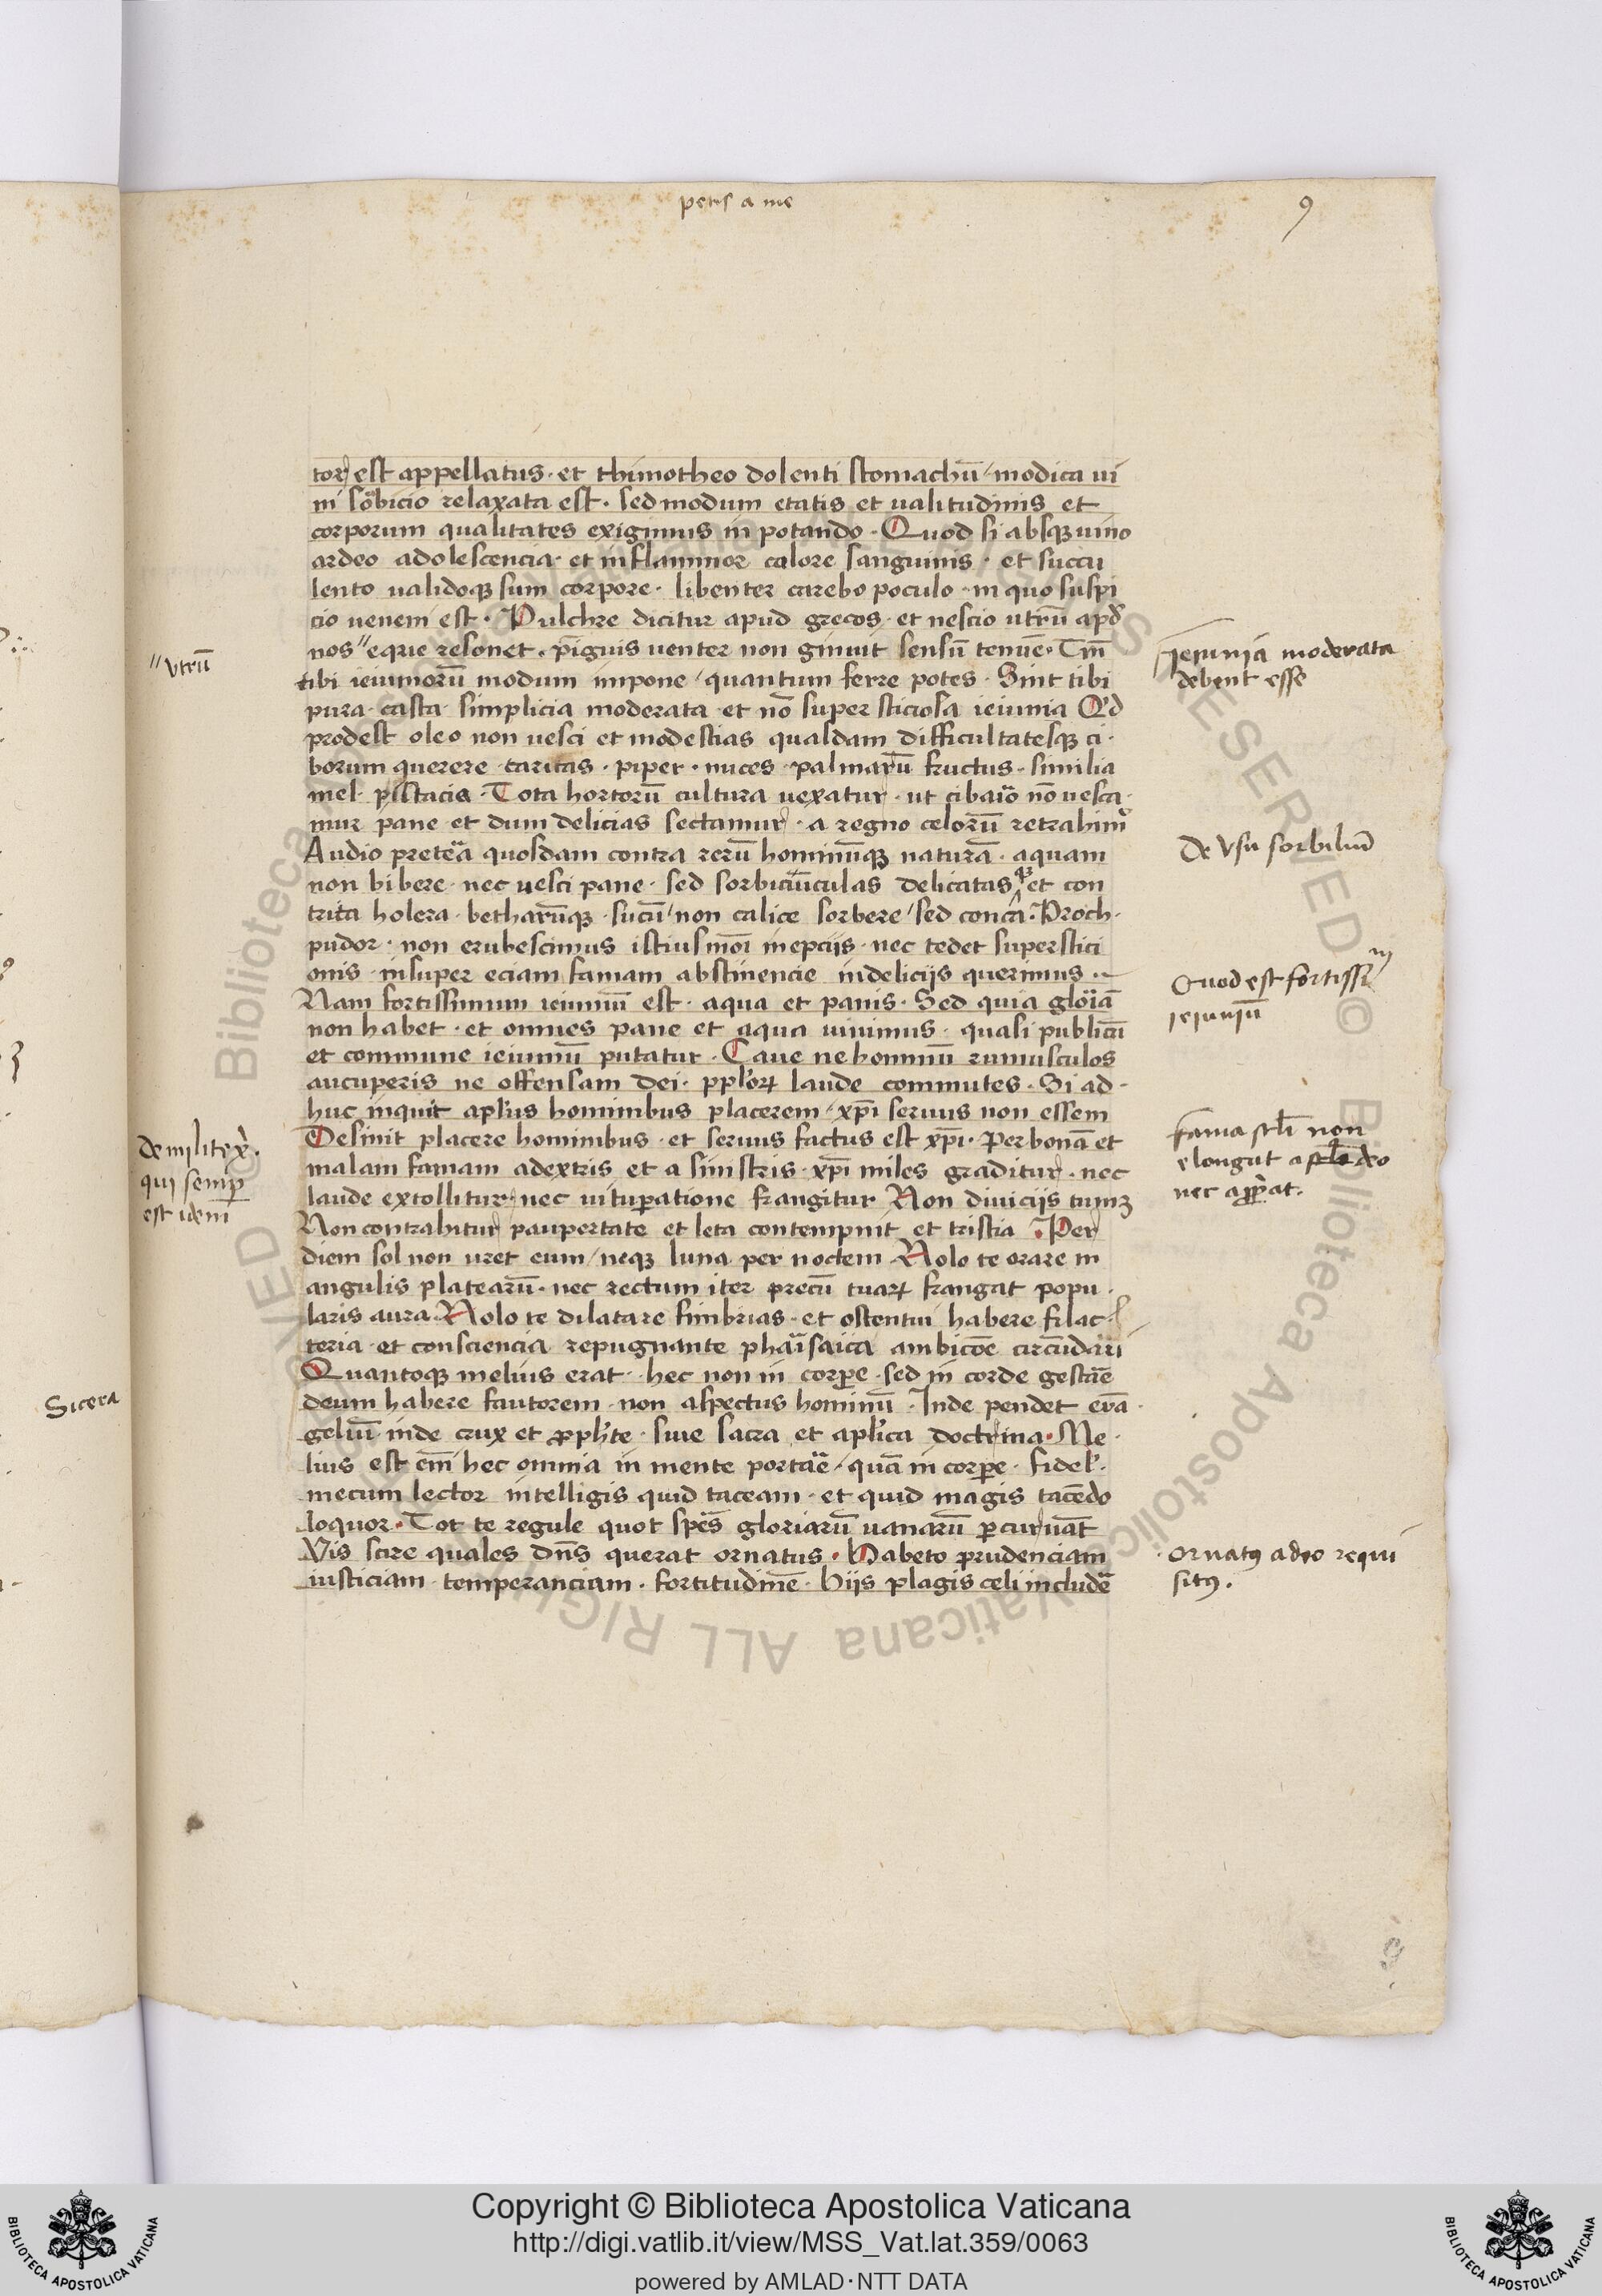 petis a me
9
tor est appellatus · et thimotheo dolenti stomachū / modica ui
ni sorbicio relaxata est · sed modum etatis et ualitudinis et
corporum qualitates exigimus in potando · Quod si absqꝫ uino
ardeo adolescencia · et inflammor calore sanguinis · et succu
lento ualidoqꝫ sum corpore · libenter carebo poculo · in quo suspi
cio ueneni est · Pulchre dicitur apud grecos · et nescio utrū apd
nos // eque resonet · pīguis uenter non gignit sensū tenuē · Tm̄
tibi ieiuniorū modum impone / quantum ferre potes · Sint tibi
pura · casta · simplicia moderata · et nō supersticiosa ieiunia Qd
prodest oleo non uesci et modestias quasdam difficultatesqꝫ ci ·
borum querere · caricas · piper · nuces · palmarū fructus · similia
mel · pistacia · Tota hortorū cultura uexatur · ut cibario nō uesca ·
mur pane · et dum delicias sectamur · a regno celorū retrahimꝰ
Audio pretea quosdam contra rerū hominūqꝫ naturā · aquam
non bibere · nec uesci pane · sed sorbiciunculas delicatas et con
trita holera · betharūqꝫ · sucū / non calice sorbere / sed conca · Proch ·
pudor · non erubescimus istiusmōi inepcijs · nec tedet supersticі
onis · insuper eciam famam abstinencie in delicijs querimus ·
Nam fortissimum ieiuniū est · aqua et panis · Sed quia gloriā
non habet · et omnes pane et aqua uiuimus · quasi publicū
et commune ieiuniū putatur · Caue ne hominū rumusculos
aucuperis ne offensam dei · pplorꝝ laude commutes · Si ad ·
huc inquit apl'us hominibus placerem / xp̄i seruus non essem
Desinit placere hominibus · et seruus factus est xp̄i · Per bonā et
malam famam adextris et a sinistris · xp̄i miles graditur · nec
laude extollitur nec uituꝑatione frangitur Non diuicijs tumꝫ
Non contrahitur paupertate et leta contempnit et tristia · Per
diem sol non uret eum / neqꝫ luna per noctem Nolo te orare in
angulis platearū · nec rectum iter precū tuarꝝ frangat popu ·
laris aura · Nolo te dilatare fimbrias · et ostentui habere filac ·
teria · et consciencia repugnante pharisaica ambicōe circūdari
Quantoqꝫ melius erat · hec non in corꝑe · sed in corde gestare
deum habere fautorem · non aspectus hominū · Inde pendet euā ·
geliū inde crux et ꝓphte · siue sacra et aplica doctrina · Me ·
lius est em̄ hec omnia in mente portare / quā in corꝑe · fidel' ·
mecum lector intelligis quid taceam · et quid magis tacēdo
loquor · Tot te regule quot spēs gloriarū uanarū ꝑcuruāt
Vis scire quales dn̄s querat ornatus · Habeto prudenciam
iusticiam · temperanciam · fortitudinē · hijs plagis celi includē
// vtrū
jejunia moderata
debent esse
De vsu sorbiliū
Quod est fortissi
jejunjū
De milite xp̄i ·
quj semꝑ
est idem
fama scli non
elongat a deo
nec aꝓpīat.
Sicera
Ornatꝰ a deo requi
sitꝰ.
9
Copyright © Biblioteca Apostolica Vaticana
http://digi.vatlib.it/view/MSS_Vat.lat.359/0063
powered by AMLAD·NTT DATA
BIBLIOTECA APOSTOLICA VATICANA
BIBLIOTECA APOSTOLICA VATICANA